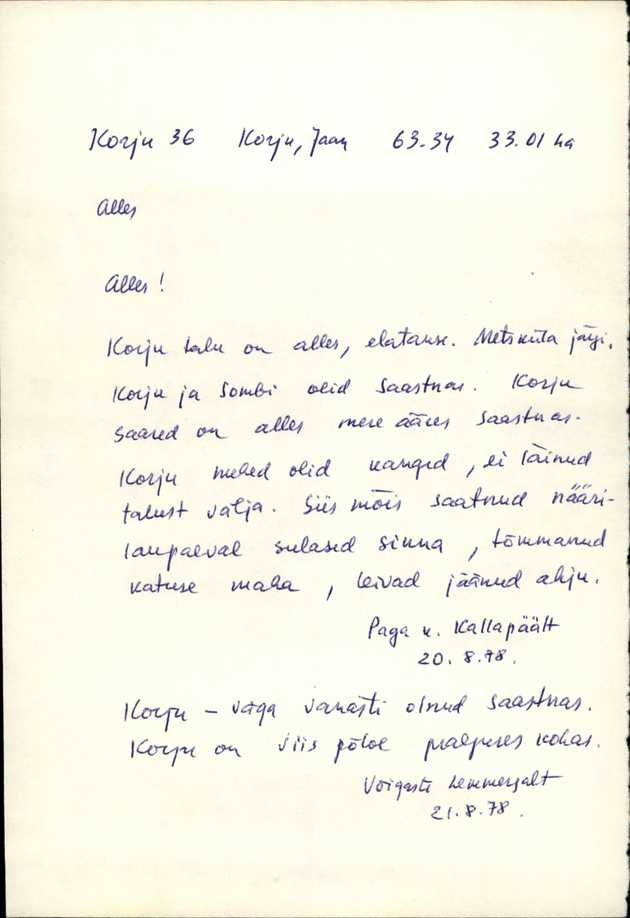 Korju 36 Korju, Jaan 63.34 33.01 ha
Alles
Alles!
Korju talu on alles, elatause. Metsküla järgi.
Korju ja Sombi olid Saastnas. Korju
saared on alles mere ääres Saastnas.
Korju mehed olid kanged, ei läinud
talust välja. Siis mõis saatnud nääri-
laupäeval sulased sinna, tõmmanud
katuse maha, leivad jäänud ahju.
Paga k. Kallapäält
20.8.78.
Korju – väga vanasti olnud Saastnas.
Korju on viis põlve praeguses kohas.
Võigaste Lemmergalt
21.8.78.